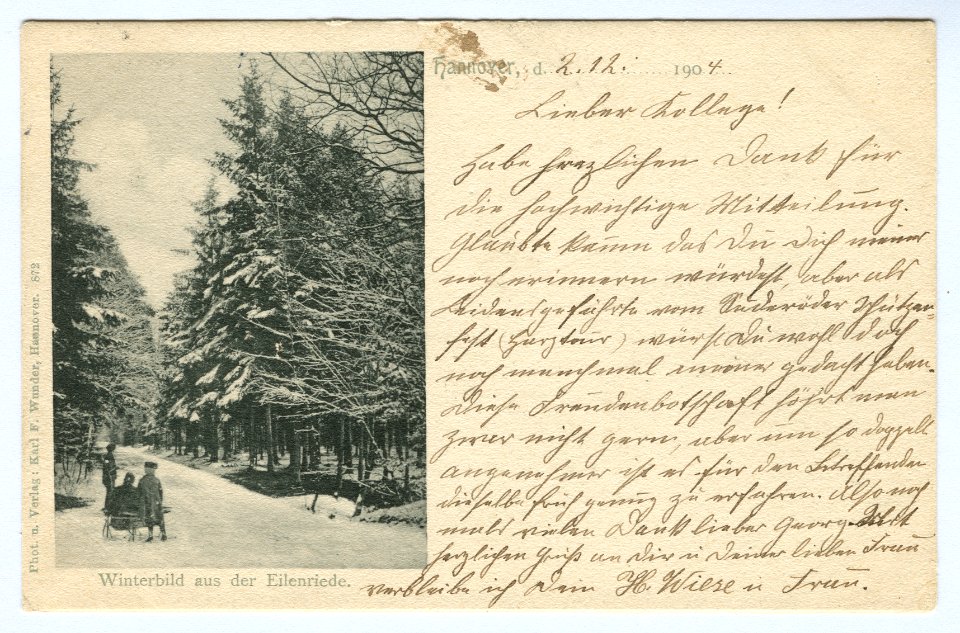 Hannover, d. 2.12. 1904.
Lieber Kollege!
Habe herzlichen Dank für
die hochwichtige Mitteilung.
Glaubte kaum das Du Dich meiner
noch erinnern würdest, aber als
Leidensgefährte vom Suderöder Schützen-
fest (Harztour) wirst Du wohl doch
noch manchmal meiner gedacht haben.
Diese Freudenbotschaft hört man
zwar nicht gern, aber um so doppelt
angenehmer ist es für den Betreffenden
dieselbe früh genug zu erfahren. Also noch
mals vielen Dank lieber Georg. Mit
herzlichen Gruß an Dir u Deiner lieben Frau
verbleibe ich Dein H. Wiese u Frau.
Winterbild aus der Eilenriede.
Phot. u. Verlag: Karl F. Wunder, Hannover. 872